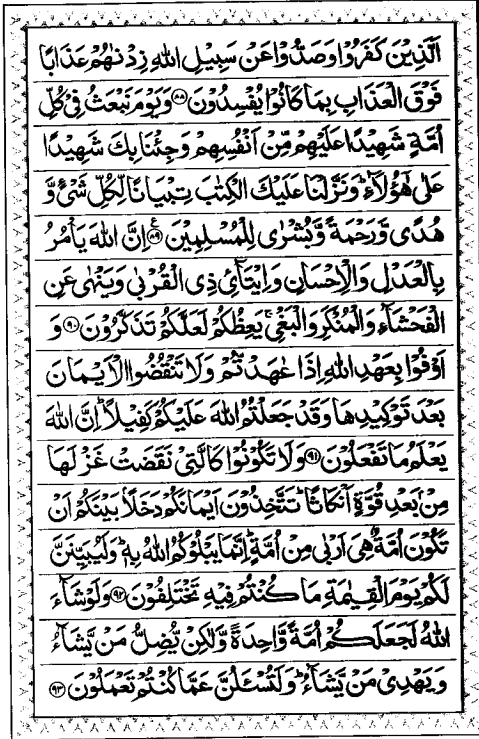 اَلَّذِيْنَ كَفَرُوْا وَصَدُّوْا عَنْ سَبِيْلِ اللّٰهِ زِدْنٰهُمْ عَذَابًا
فَوْقَ الْعَذَابِ بِمَا كَانُوْا يُفْسِدُوْنَ ﴿۸۸﴾ وَيَوْمَ نَبْعَثُ فِيْ كُلِّ
اُمَّةٍ شَهِيْدًا عَلَيْهِمْ مِّنْ اَنْفُسِهِمْ وَجِئْنَا بِكَ شَهِيْدًا
عَلٰى هٰٓؤُلَآءِ ؕ وَنَزَّلْنَا عَلَيْكَ الْكِتٰبَ تِبْيَانًا لِّكُلِّ شَيْءٍ وَّ
هُدًى وَّرَحْمَةً وَّبُشْرٰى لِلْمُسْلِمِيْنَ ﴿۸۹﴾ ع اِنَّ اللّٰهَ يَاْمُرُ
بِالْعَدْلِ وَالْاِحْسَانِ وَاِيْتَآئِ ذِي الْقُرْبٰى وَيَنْهٰى عَنِ
الْفَحْشَآءِ وَالْمُنْكَرِ وَالْبَغْيِ ۚ يَعِظُكُمْ لَعَلَّكُمْ تَذَكَّرُوْنَ ﴿۹۰﴾ وَ
اَوْفُوْا بِعَهْدِ اللّٰهِ اِذَا عٰهَدْتُّمْ وَلَا تَنْقُضُوا الْاَيْمَانَ
بَعْدَ تَوْكِيْدِهَا وَقَدْ جَعَلْتُمُ اللّٰهَ عَلَيْكُمْ كَفِيْلًا ؕ اِنَّ اللّٰهَ
يَعْلَمُ مَا تَفْعَلُوْنَ ﴿۹۱﴾ وَلَا تَكُوْنُوْا كَالَّتِيْ نَقَضَتْ غَزْلَهَا
مِنْۢ بَعْدِ قُوَّةٍ اَنْكَاثًا ؕ تَتَّخِذُوْنَ اَيْمَانَكُمْ دَخَلًۢا بَيْنَكُمْ اَنْ
تَكُوْنَ اُمَّةٌ هِيَ اَرْبٰى مِنْ اُمَّةٍ ؕ اِنَّمَا يَبْلُوْكُمُ اللّٰهُ بِهٖ ؕ وَلَيُبَيِّنَنَّ
لَكُمْ يَوْمَ الْقِيٰمَةِ مَا كُنْتُمْ فِيْهِ تَخْتَلِفُوْنَ ﴿۹۲﴾ وَلَوْ شَآءَ
اللّٰهُ لَجَعَلَكُمْ اُمَّةً وَّاحِدَةً وَّلٰكِنْ يُّضِلُّ مَنْ يَّشَآءُ
وَيَهْدِيْ مَنْ يَّشَآءُ ؕ وَلَتُسْـَٔلُنَّ عَمَّا كُنْتُمْ تَعْمَلُوْنَ ﴿۹۳﴾